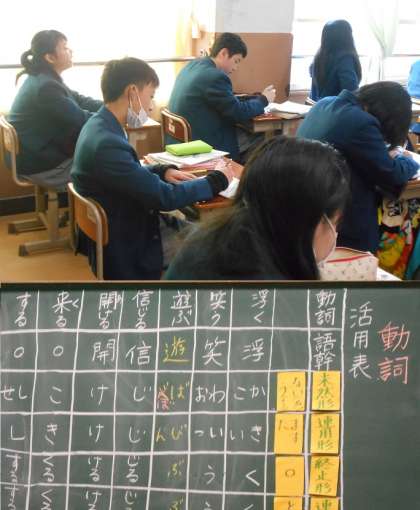 動詞
活用表
動詞 語幹 未然形 連用形 終止形
ない ます ○ と
浮く 浮 かこ きい く く
笑う 笑 わお いっ う う
遊ぶ 遊 ば びん ぶ ぶ
信じる 信 じ じ じる じる
開ける 開 け け ける ける
来る ○ こ き くる くる
する ○ しせ し する する